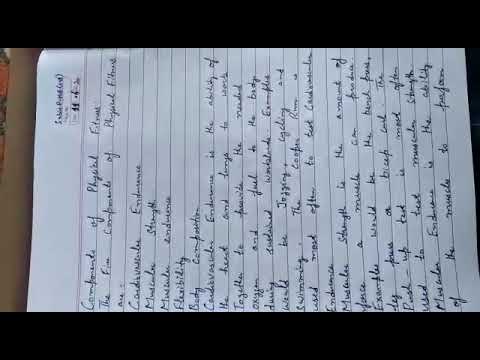 Components of Physical Fitness
The Five Components of Physical Fitness
are:-
Cardiovascular Endurance
Muscular Strength
Muscular endurance
Flexibility
Body Composition
Cardiovascular Endurance is the ability of
the heart and lungs to work
Together to provide the needed
oxygen and fuel to the body
during sustained workloads. Examples
would be Jogging, cycling and
Swimming. The Cooper Run is
used most often to test Cardiovascular
Endurance
Muscular Strength is the amount of
force a muscle can produce.
Examples would be the bench press,
leg press or bicep curl. The
Push-up test is most often
used to test muscular strength
Muscular Endurance is the ability
of the muscle to perform